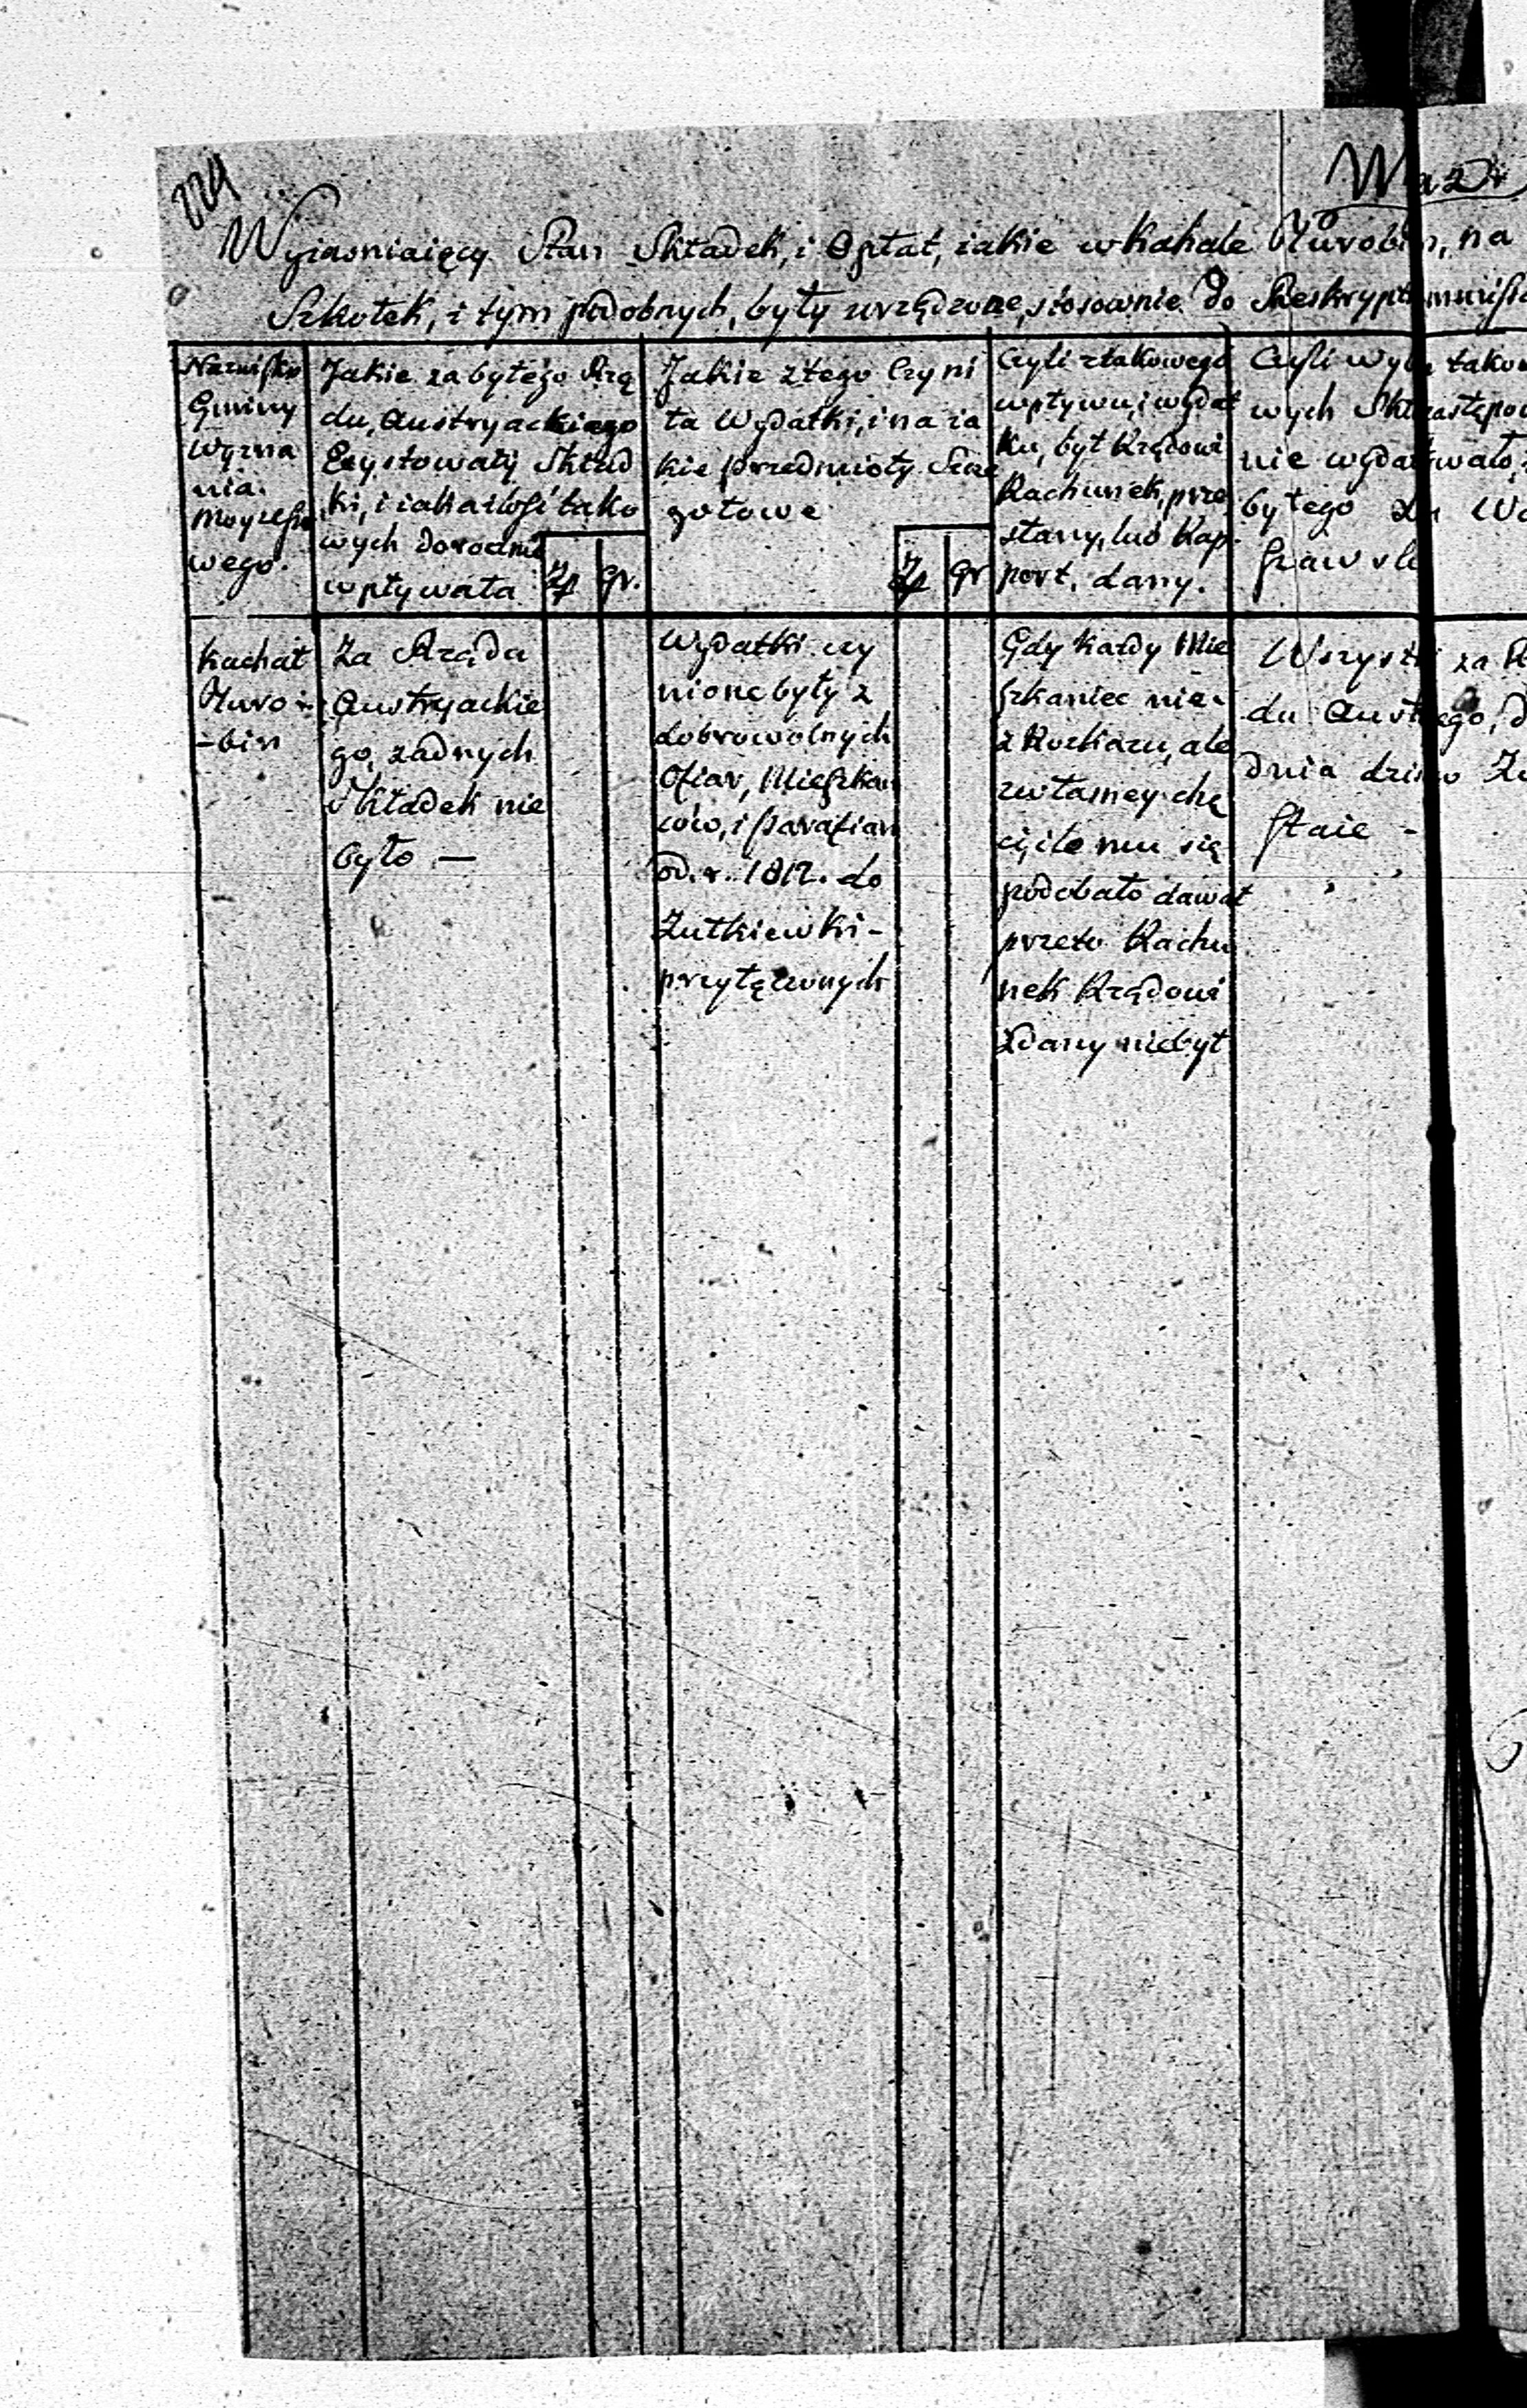 224
Wyiasniaiący Stan Składek, i Opłat, iakie w Kahale Turobin, na
Szkołek, i tym podobnych, były urządzone, stosownie do
Nazwisko
Gminy
Wyzna
nia
Moyżesze
wego.
Jakie za byłego Rzą
du, Austryackiego
Exystowały Skład
ki, i iaka ilość tako
wych dorocznie
wpływała
Zł
gr.
Jakie z tego Czyni
ta Wydatki, i na ia
kie przedmioty Szcze
gołowe
Zł
gr
Czyli z takowego
wpływu, i wydat
ku, był Rządowi
Rachunek, prze
stany, lub Rap-
port, dany.
Czyli
wych
nie
byłego
Kachał
Turo-
-bin
Za Rządu
Austryackie
go, zadnych
Składek nie
było —
Wydatki czy
nione były z
dobrowolnych
Ofiar, Mieszkań
ców, i Parafian
od. r. 1812. do
Żułkiewki-
przyłączonych
Gdy Kazdy Mie
szkaniec nie-
z Rozkazu, ale
z własney chę
ci, ile mu się
podobało dawał
przeto Rachu
nek Rządowi
Zdany niebył
za
du
dnia
staie -